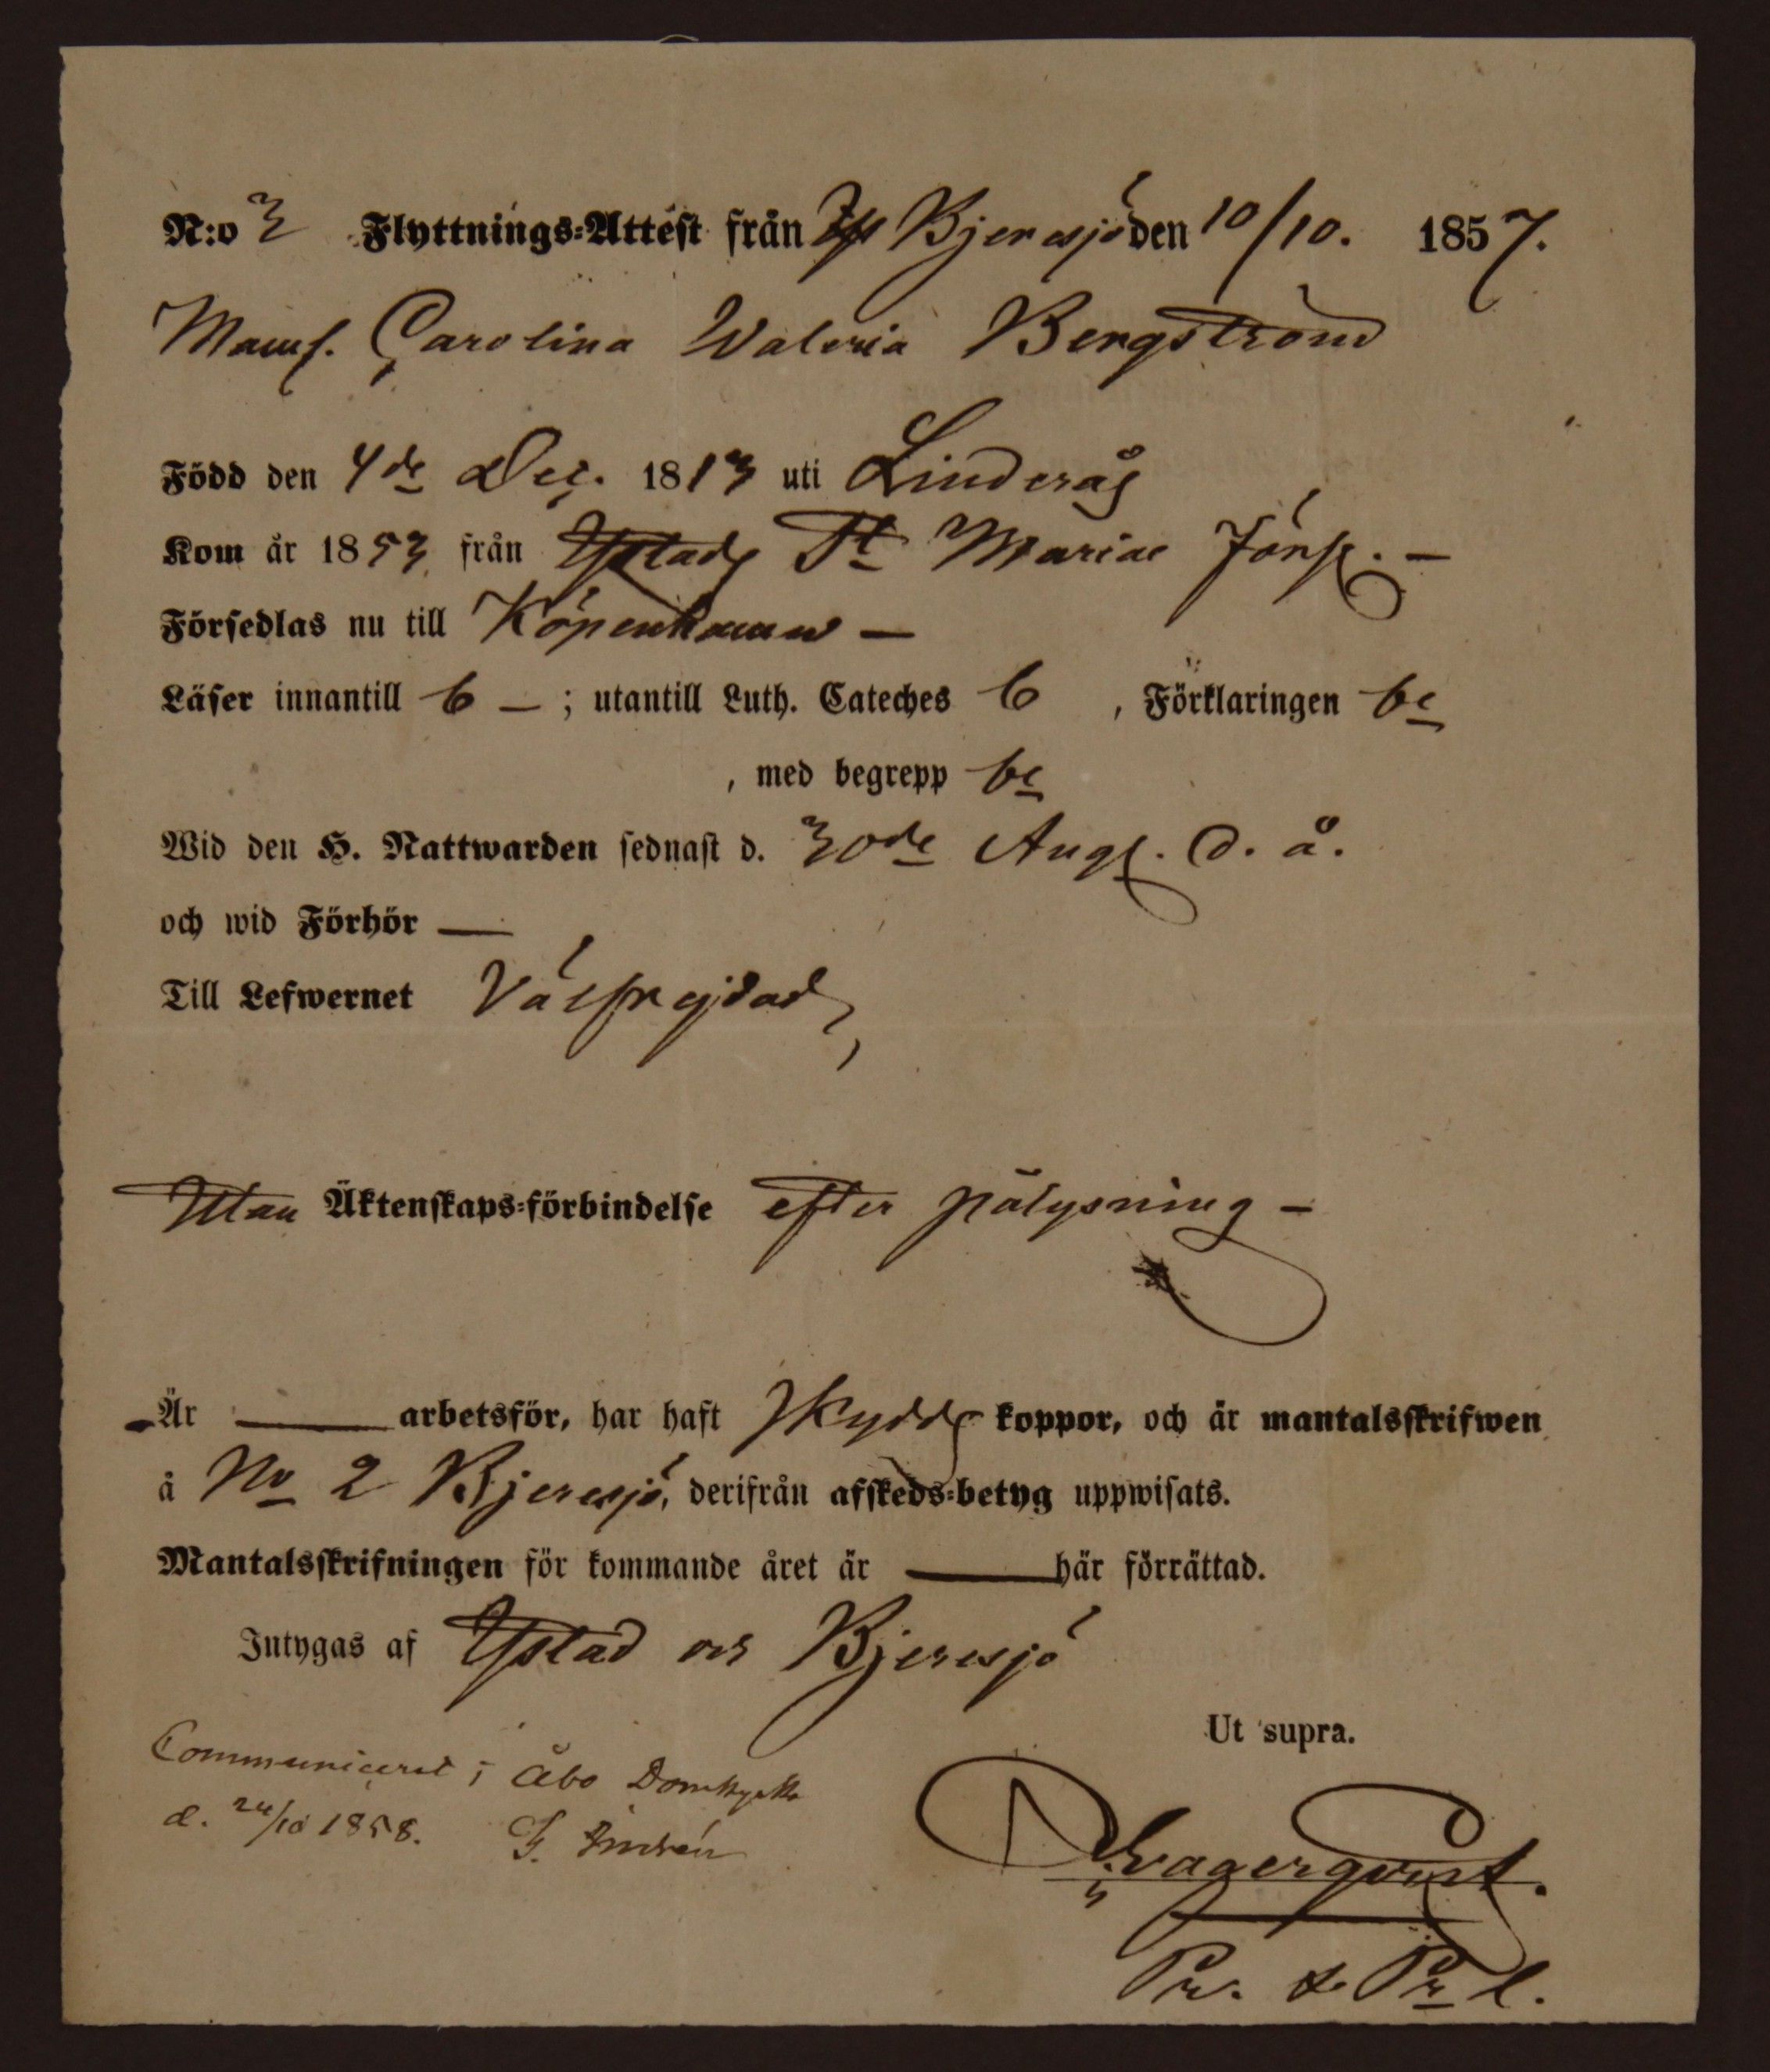 N:o 3 Flyttnings-Attest från Bjeresjö den 10/10. 1857.
Mams. Carolina Waleria Bergström
Född den 4de Dec. 1813 uti Linderås
Kom år 1853 från Ystads St Mariae Förs. —
Försedlas nu till Köpenhamn —
Läser innantill b — ; utantill Luth. Cateches b , Förklaringen be
, med begrepp be
Wid den H. Nattwarden sednast d. 30de Aug. d. å.
och wid Förhör —
Till Lefwernet Välfrejdad,
Utan Äktenskaps-förbindelse efter pålysning —
Är — arbetsför, har haft skydds koppor, och är mantalsskrifwen
å No 2 Bjeresjö, derifrån afskeds-betyg uppwisats.
Mantalsskrifningen för kommande året är — här förrättad.
Intygas af Ystad och Bjeresjö
Ut supra.
Communicerat i Åbo Domkyrka
d. 24/10 1858.
Pr. & Pr l.